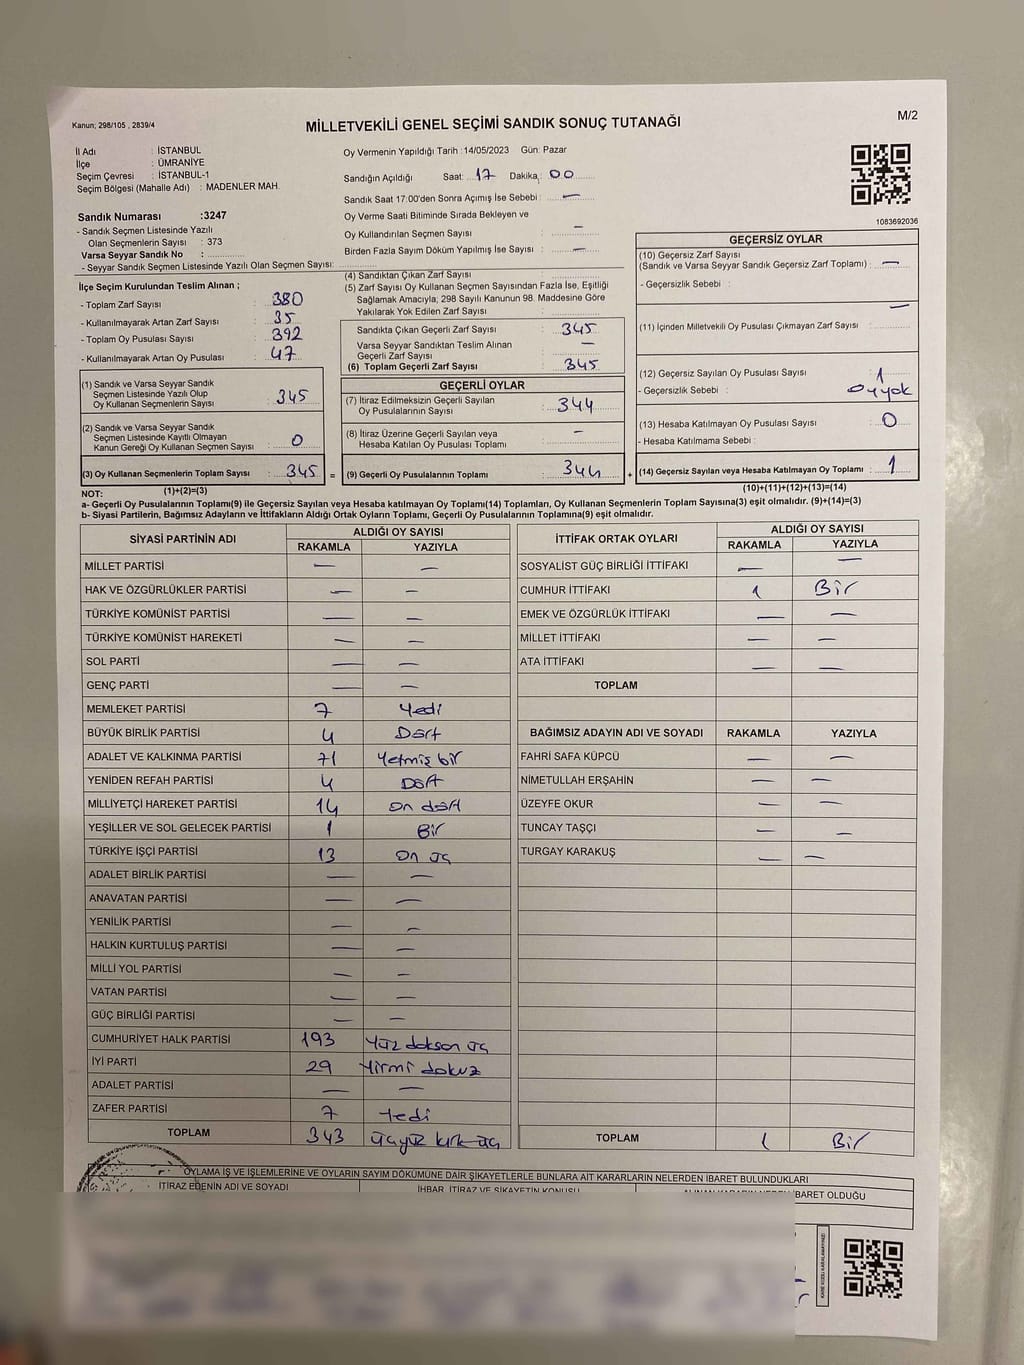 Kanun; 298/105 , 2839/4
MİLLETVEKİLİ GENEL SEÇİMİ SANDIK SONUÇ TUTANAĞI
M/2
İl Adı : İSTANBUL
İlçe : ÜMRANİYE
Seçim Çevresi : İSTANBUL-1
Seçim Bölgesi (Mahalle Adı) : MADENLER MAH.
Sandık Numarası :3247
- Sandık Seçmen Listesinde Yazılı
Olan Seçmenlerin Sayısı : 373
Varsa Seyyar Sandık No :
- Seyyar Sandık Seçmen Listesinde Yazılı Olan Seçmen Sayısı:
Oy Vermenin Yapıldığı Tarih :14/05/2023 Gün: Pazar
Sandığın Açıldığı Saat: 17 Dakika: 00
Sandık Saat 17:00'den Sonra Açımış İse Sebebi : —
Oy Verme Saati Bitiminde Sırada Bekleyen ve
Oy Kullandırılan Seçmen Sayısı : —
Birden Fazla Sayım Döküm Yapılmış İse Sayısı : —
1083692036
İlçe Seçim Kurulundan Teslim Alınan ;
- Toplam Zarf Sayısı : 380
- Kullanılmayarak Artan Zarf Sayısı : 35
- Toplam Oy Pusulası Sayısı : 392
- Kullanılmayarak Artan Oy Pusulası : 47
(1) Sandık ve Varsa Seyyar Sandık
Seçmen Listesinde Yazılı Olup
Oy Kullanan Seçmenlerin Sayısı : 345
(2) Sandık ve Varsa Seyyar Sandık
Seçmen Listesinde Kayıtlı Olmayan
Kanun Gereği Oy Kullanan Seçmen Sayısı : 0
(3) Oy Kullanan Seçmenlerin Toplam Sayısı : 345 =
(1)+(2)=(3)
(4) Sandıktan Çıkan Zarf Sayısı :
(5) Zarf Sayısı Oy Kullanan Seçmen Sayısından Fazla İse, Eşitliği
Sağlamak Amacıyla; 298 Sayılı Kanunun 98. Maddesine Göre
Yakılarak Yok Edilen Zarf Sayısı :
Sandıkta Çıkan Geçerli Zarf Sayısı : 345
Varsa Seyyar Sandıktan Teslim Alınan
Geçerli Zarf Sayısı : —
(6) Toplam Geçerli Zarf Sayısı : 345
GEÇERLİ OYLAR
(7) İtiraz Edilmeksizin Geçerli Sayılan
Oy Pusulalarının Sayısı : 344
(8) İtiraz Üzerine Geçerli Sayılan veya
Hesaba Katılan Oy Pusulası Toplamı : —
(9) Geçerli Oy Pusulalarının Toplamı : 344 +
GEÇERSİZ OYLAR
(10) Geçersiz Zarf Sayısı
(Sandık ve Varsa Seyyar Sandık Geçersiz Zarf Toplamı) : —
- Geçersizlik Sebebi : —
(11) İçinden Milletvekili Oy Pusulası Çıkmayan Zarf Sayısı :
(12) Geçersiz Sayılan Oy Pusulası Sayısı : 1
- Geçersizlik Sebebi : Oy yok
(13) Hesaba Katılmayan Oy Pusulası Sayısı : 0
- Hesaba Katılmama Sebebi :
(14) Geçersiz Sayılan veya Hesaba Katılmayan Oy Toplamı : 1
(10)+(11)+(12)+(13)=(14)
NOT:
a- Geçerli Oy Pusulalarının Toplamı(9) ile Geçersiz Sayılan veya Hesaba katılmayan Oy Toplamı(14) Toplamları, Oy Kullanan Seçmenlerin Toplam Sayısına(3) eşit olmalıdır. (9)+(14)=(3)
b- Siyasi Partilerin, Bağımsız Adayların ve İttifakların Aldığı Ortak Oyların Toplamı, Geçerli Oy Pusulalarının Toplamına(9) eşit olmalıdır.
SİYASİ PARTİNİN ADI ALDIĞI OY SAYISI
RAKAMLA YAZIYLA
MİLLET PARTİSİ — —
HAK VE ÖZGÜRLÜKLER PARTİSİ — —
TÜRKİYE KOMÜNİST PARTİSİ — —
TÜRKİYE KOMÜNİST HAREKETİ — —
SOL PARTİ — —
GENÇ PARTİ — —
MEMLEKET PARTİSİ 7 Yedi
BÜYÜK BİRLİK PARTİSİ 4 Dört
ADALET VE KALKINMA PARTİSİ 71 Yetmiş bir
YENİDEN REFAH PARTİSİ 4 Dört
MİLLİYETÇİ HAREKET PARTİSİ 14 On dört
YEŞİLLER VE SOL GELECEK PARTİSİ 1 Bir
TÜRKİYE İŞÇİ PARTİSİ 13 On üç
ADALET BİRLİK PARTİSİ — —
ANAVATAN PARTİSİ — —
YENİLİK PARTİSİ — —
HALKIN KURTULUŞ PARTİSİ — —
MİLLİ YOL PARTİSİ — —
VATAN PARTİSİ — —
GÜÇ BİRLİĞİ PARTİSİ — —
CUMHURİYET HALK PARTİSİ 193 Yüz doksan üç
İYİ PARTİ 29 Yirmi dokuz
ADALET PARTİSİ — —
ZAFER PARTİSİ 7 Yedi
TOPLAM 343 Üçyüz kırk üç
İTTİFAK ORTAK OYLARI ALDIĞI OY SAYISI
RAKAMLA YAZIYLA
SOSYALİST GÜÇ BİRLİĞİ İTTİFAKI — —
CUMHUR İTTİFAKI 1 Bir
EMEK VE ÖZGÜRLÜK İTTİFAKI — —
MİLLET İTTİFAKI — —
ATA İTTİFAKI — —
TOPLAM
BAĞIMSIZ ADAYIN ADI VE SOYADI RAKAMLA YAZIYLA
FAHRİ SAFA KÜPCÜ — —
NİMETULLAH ERŞAHİN — —
ÜZEYFE OKUR — —
TUNCAY TAŞÇI — —
TURGAY KARAKUŞ — —
TOPLAM 1 Bir
OYLAMA İŞ VE İŞLEMLERİNE VE OYLARIN SAYIM DÖKÜMÜNE DAİR ŞİKAYETLERLE BUNLARA AİT KARARLARIN NELERDEN İBARET BULUNDUKLARI
İTİRAZ EDENİN ADI VE SOYADI İHBAR, İTİRAZ VE ŞİKAYETİN KONUSU İBARET OLDUĞU